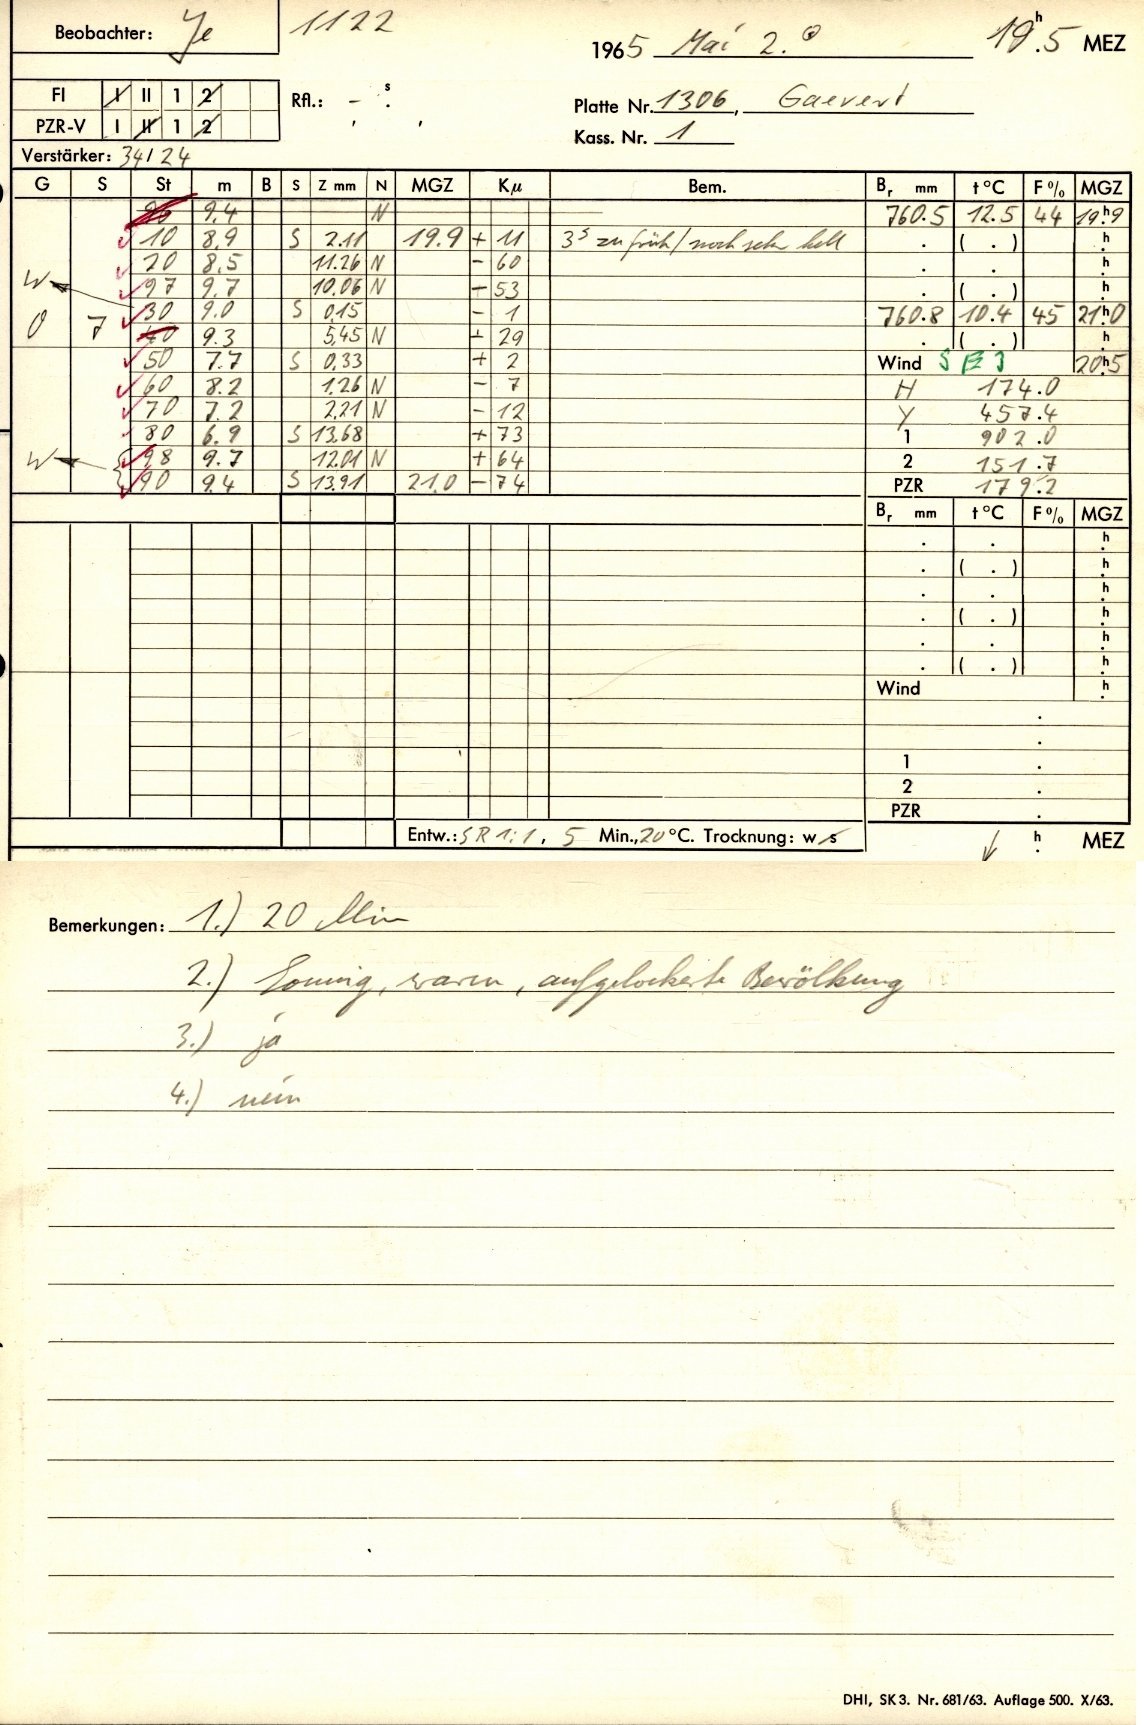 Beobachter: Je 1122 1965 Mai 2. 19h.5 MEZ
FI I II 1 2 Rfl.: - s. Platte Nr. 1306, Gaevert
PZR-V I II 1 2 Kass. Nr. 1
Verstärker: 34/24
G S St m B S Z mm N MGZ Kμ Bem. Br mm t°C F% MGZ
9.4 N 760.5 12.5 44 19h9
10 8.9 S 2.11 19.9 + 11 3s zu früh / noch sehr hell . ( . ) h.
20 8.5 11.26 N - 60 . . h.
W 97 9.7 10.06 N - 53 . ( . ) h.
0 7 30 9.0 S 0,15 - 1 760.8 10.4 45 21h0
40 9.3 5,45 N + 29 . ( . ) h.
50 7.7 S 0,33 + 2 Wind S E 3 20h5
60 8.2 1.26 N - 7 H 174.0
70 7.2 2,21 N - 12 Y 457.4
80 6.9 S 13,68 + 73 1 902.0
W 98 9.7 12.01 N + 64 2 151.7
90 9.4 S 13.91 21.0 - 74 PZR 179.2
Br mm t°C F% MGZ
. . h.
. ( . ) h.
. . h.
. ( . ) h.
. . h.
. ( . ) h.
Wind h.
.
.
1 .
2 .
PZR .
Entw.: SR 1:1, 5 Min., 20°C. Trocknung: w/s h. MEZ
Bemerkungen: 1.) 20 Min
2.) Sonnig, warm, aufgelockerte Bewölkung
3.) ja
4.) nein
DHI, SK 3. Nr. 681/63. Auflage 500. X/63.